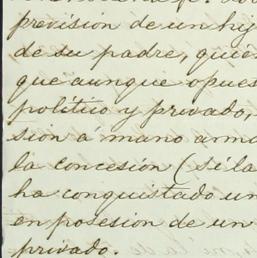 previsión de un hij
de su padre, quié
que aunque opues
político y privado,
sión á mano arma
la concesión (si la
ha conquistado un
en posesion de un
privado.